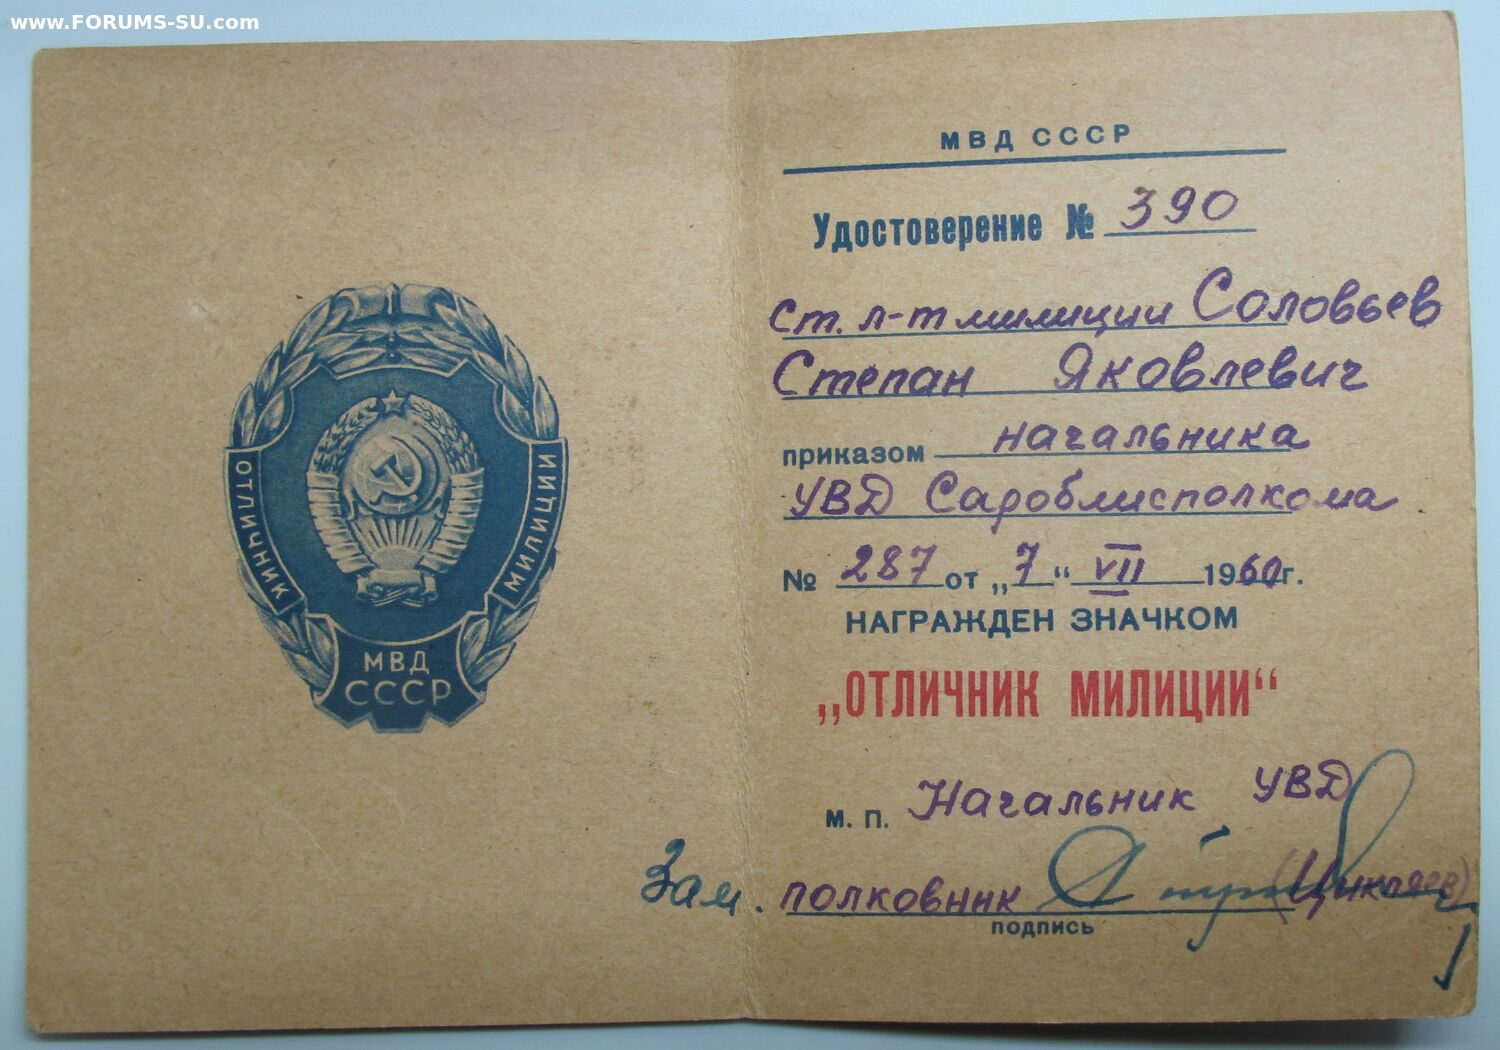 www.FORUMS-SU.com
ОТЛИЧНИК
МИЛИЦИИ
МВД
СССР
МВД СССР
Удостоверение № 390
Ст. л-т милиции Соловьев
Степан Яковлевич
приказом начальника
УВД Сароблисполкома
№ 287 от „7“ VII 1960г.
НАГРАЖДЕН ЗНАЧКОМ
„ОТЛИЧНИК МИЛИЦИИ“
М. П. Начальник УВД
Зам. полковник (Цикляев)
подпись